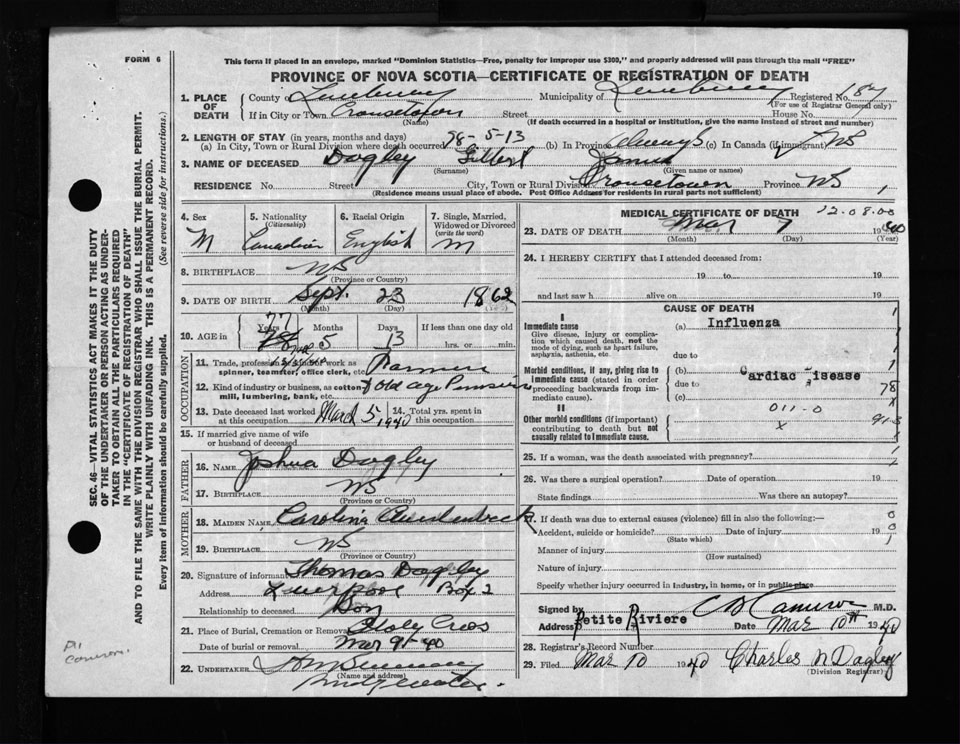 FORM 6
This form if placed in an envelope, marked "Dominion Statistics—Free, penalty for improper use $300," and properly addressed will pass through the mail "FREE"
PROVINCE OF NOVA SCOTIA—CERTIFICATE OF REGISTRATION OF DEATH
1. PLACE OF DEATH
County of Lunenburg Municipality of Lunenburg Registered No. 187
(For use of Registrar General only)
If in City or Town Crousetown Street House No.
(Name) (If death occurred in a hospital or institution, give the name instead of street and number)
2. LENGTH OF STAY (in years, months and days)
(a) In City, Town or Rural Division where death occurred 78-5-13 (b) In Province Always (c) In Canada (if immigrant) NS
3. NAME OF DECEASED Dagley Gilbert James
(Surname) (Given name or names)
RESIDENCE No. Street City, Town or Rural Division Crousetown Province NS 1
(Residence means usual place of abode. Post Office Address for residents in rural parts not sufficient)
4. Sex M
5. Nationality (Citizenship) Canadian
6. Racial Origin English
7. Single, Married, Widowed or Divorced (write the word) M
8. BIRTHPLACE NS
(Province or Country)
9. DATE OF BIRTH Sept. 23 1862
(Month) (Day)
10. AGE in Years 77 Months 5 Days 13 If less than one day old hrs. or min.
OCCUPATION
11. Trade, profession work as spinner, teamster, office clerk, etc. Farmer
12. Kind of industry or business, as cotton mill, lumbering, bank, etc. old age Pensioner
13. Date deceased last worked at this occupation March 5 1940
14. Total yrs. spent in this occupation
15. If married give name of wife or husband of deceased
FATHER
16. NAME Joshua Dagley
17. BIRTHPLACE NS
(Province or Country)
MOTHER
18. MAIDEN NAME Caroline
19. BIRTHPLACE NS
(Province or Country)
20. Signature of informant Thomas Dagley
Address Liverpool Box 2
Relationship to deceased Son
21. Place of Burial, Cremation or Removal Holy Cross
Date of burial or removal Mar 9-40
22. UNDERTAKER
(Name and address) Bridgewater
MEDICAL CERTIFICATE OF DEATH 12-08-00
23. DATE OF DEATH Mar 7 1940
(Month) (Day) (Year)
24. I HEREBY CERTIFY that I attended deceased from:
19 to 19
and last saw h alive on 19
CAUSE OF DEATH
I
Immediate cause
Give disease, injury or complication which caused death, not the mode of dying, such as heart failure, asphyxia, asthenia, etc.
(a) Influenza
due to
Morbid conditions, if any, giving rise to immediate cause (stated in order proceeding backwards from immediate cause).
(b) Cardiac Disease
due to
(c) 78
II
Other morbid conditions (if important) contributing to death but not causally related to immediate cause.
011-0
x
25. If a woman, was the death associated with pregnancy?
26. Was there a surgical operation? Date of operation 19
State findings Was there an autopsy?
27. If death was due to external causes (violence) fill in also the following:—
Accident, suicide or homicide? Date of injury 19
(State which)
Manner of injury
(How sustained)
Nature of injury
Specify whether injury occurred in industry, in home, or in public place
Signed by C D Cameron M.D.
Address Petite Riviere Date Mar 10th 1940
28. Registrar's Record Number
29. Filed Mar 10 1940 Charles N Dagley
(Division Registrar)
SEC. 46—VITAL STATISTICS ACT MAKES IT THE DUTY
OF THE UNDERTAKER OR PERSON ACTING AS UNDERTAKER TO OBTAIN ALL THE PARTICULARS REQUIRED
IN THE "CERTIFICATE OF REGISTRATION OF DEATH"
AND TO FILE THE SAME WITH THE DIVISION REGISTRAR WHO SHALL ISSUE THE BURIAL PERMIT.
WRITE PLAINLY WITH UNFADING INK. THIS IS A PERMANENT RECORD.
Every item of information should be carefully supplied. (See reverse side for instructions.)
Cameron.